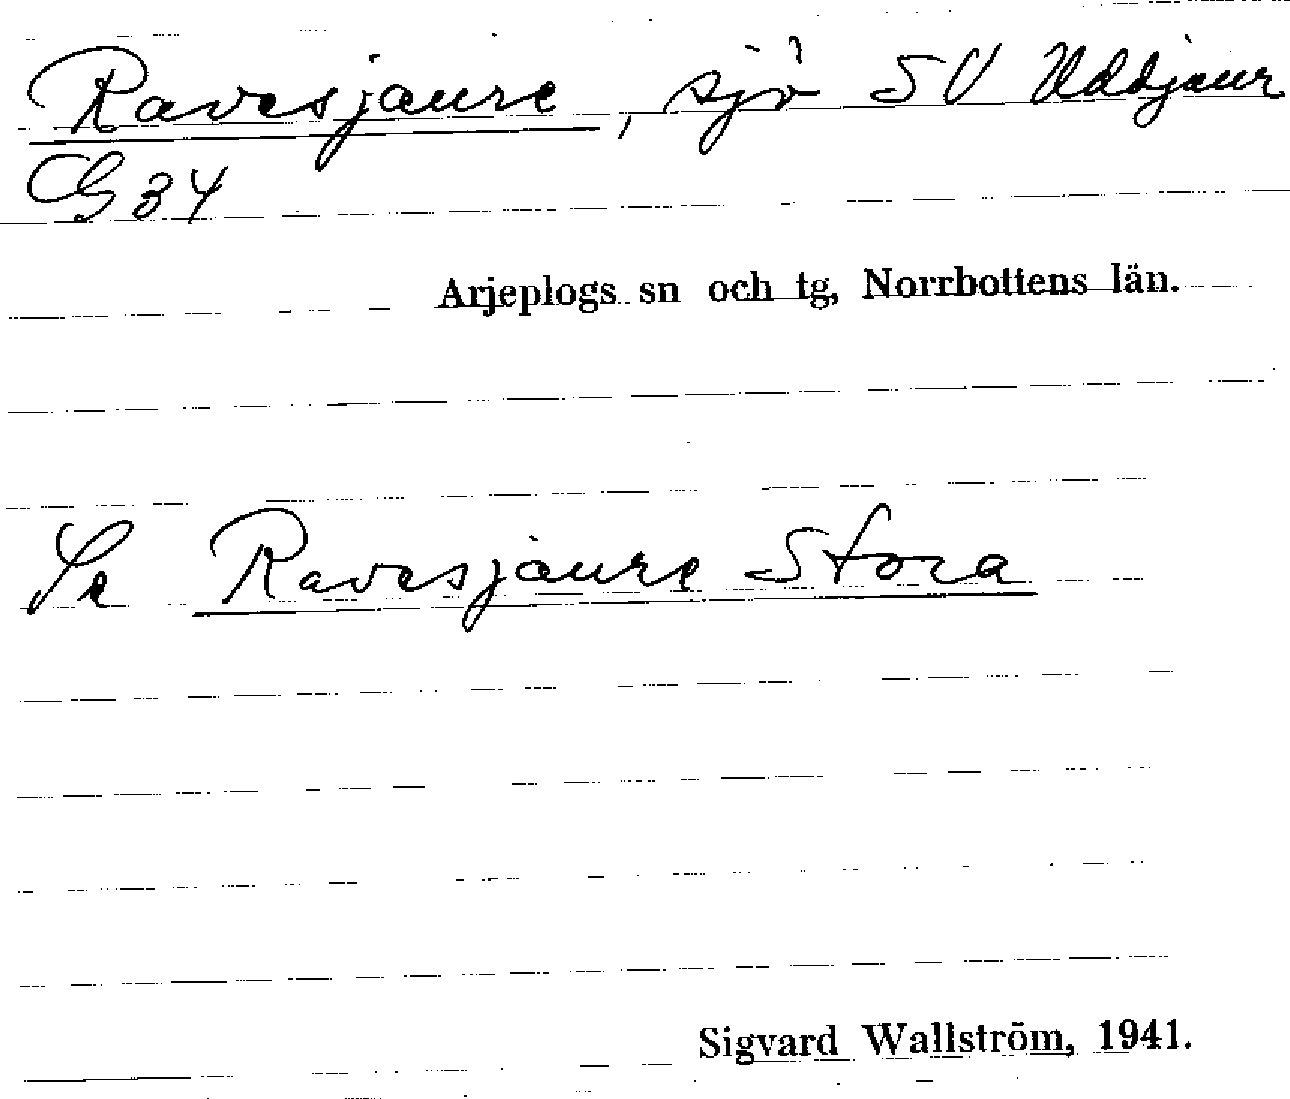 Ravesjaure, sjö SV Uddjaur
CG 34
Arjeplogs sn och tg, Norrbottens län.
Se Ravesjaure Stora
Sigvard Wallström, 1941.